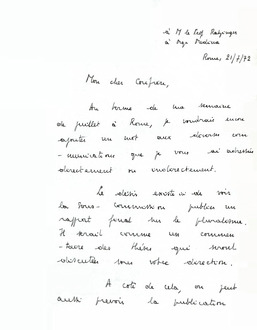 à M. le Prof. Ratzinger
à Mgr Medina
Rome, 21/7/72
Mon cher Confrère,
Au terme de ma semaine
de juillet à Rome, je voudrais encore
ajouter un mot aux diverses com
- munications que je vous ai adressées
directement ou indirectement.
Le désir existe ici de voir
la Sous-Commission publier un
rapport final sur le pluralisme.
Il serait comme un commen
- taire des thèses qui seront
discutées sous votre direction.
A coté de cela, on peut
aussi prévoir la publication